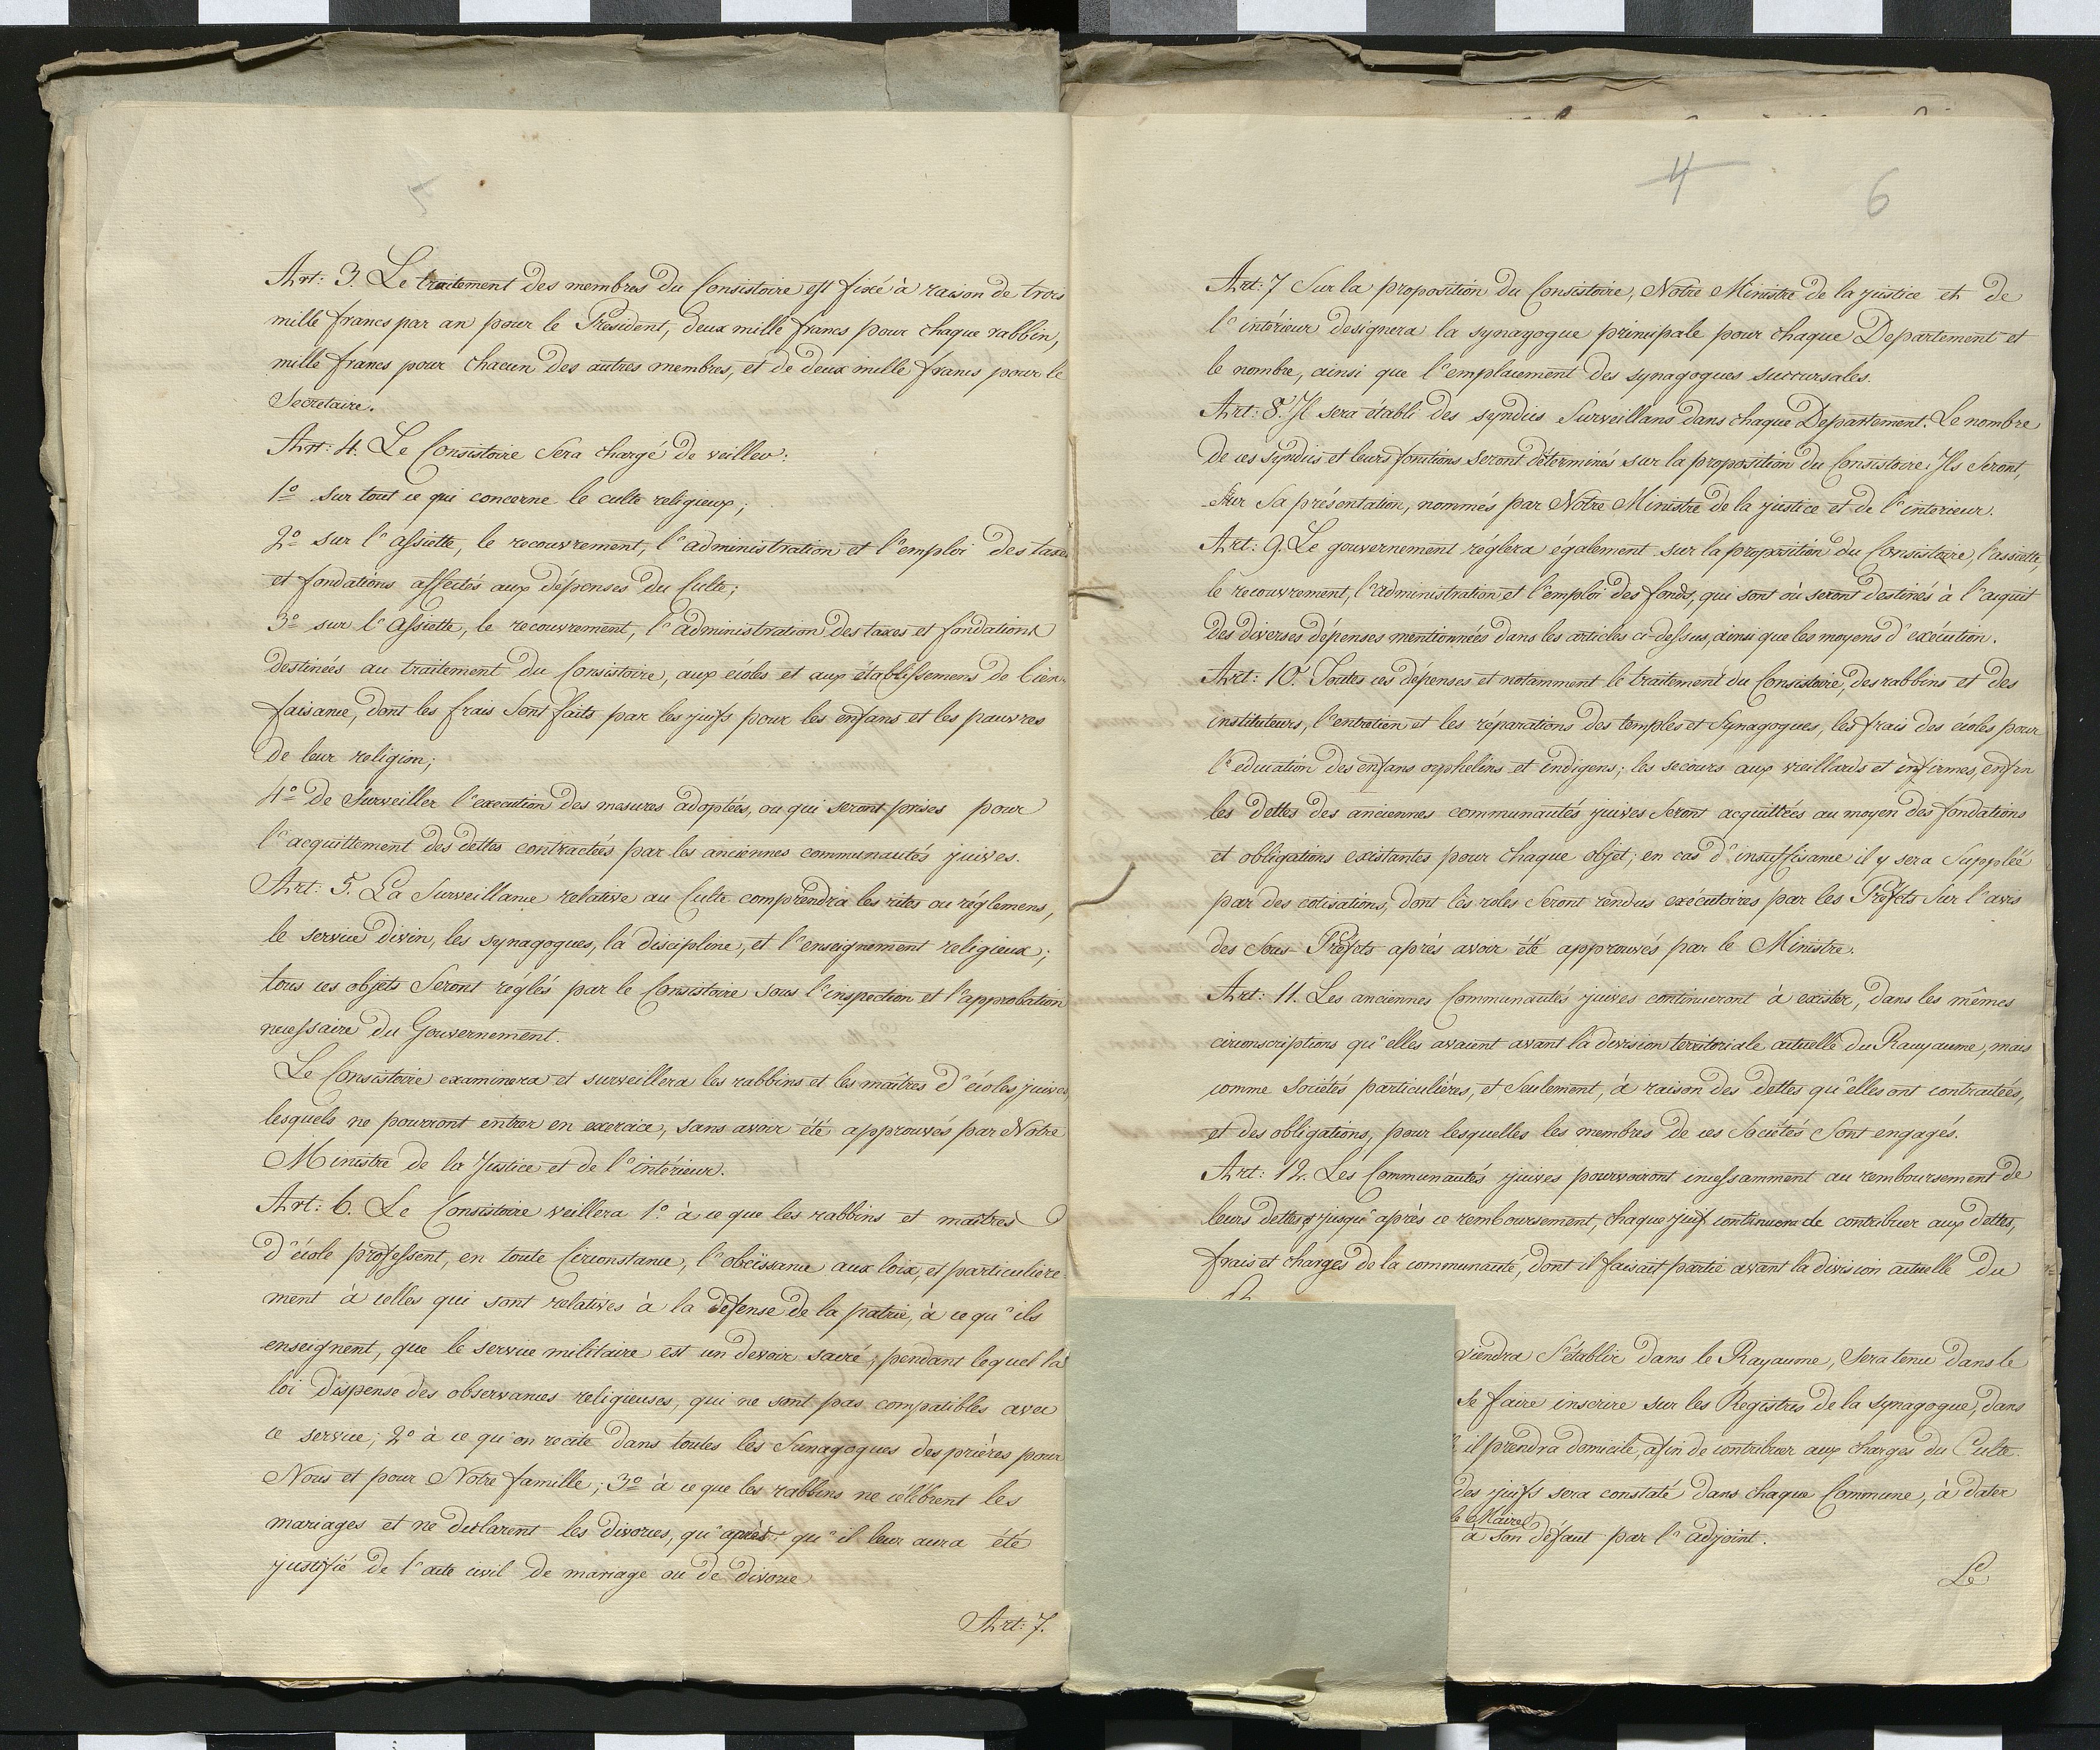 5
Art: 3. Le traitement des membres du Consistoire est fixé à raison de trois
mille francs par an pour le Président, deux mille francs pour chaque rabbin,
mille francs pour chacun des autres membres, et de deux mille francs pour le
Secretaire.
Art: 4. Le Consistoire Sera chargé de veiller:
1o sur tout ce qui concerne le culte religieux;
2o sur l'assiette, le recouvrement, l'administration et l'emploi des taxes
et fondations affectés aux dépenses du Culte;
3o sur l'Assiette, le recouvrement, l'administration des taxes et fondations
destinées au traitement du Consistoire, aux écoles et aux établissemens de bien-
faisance, dont les frais sont faits par les juifs pour les enfans et les pauvres
de leur religion;
4o de Surveiller l'execution des mesures adoptées, ou qui seront prises pour
l'acquittement des dettes contractées par les anciennes communautés juives.
Art: 5. La Surveillance relative au Culte comprendra les rites ou réglemens,
le service divin, les synagogues, la discipline, et l'enseignement religieux;
tous ces objets Seront réglés par le Consistoire sous l'inspection et l'approbation
necessaire du Gouvernement.
Le Consistoire examinera et surveillera les rabbins et les maîtres d'écoles juives,
lesquels ne pourront entrer en exercice, sans avoir été approuvés par Notre
Ministre de la Justice et de l'intérieur.
Art: 6. Le Consistoire veillera 1o à ce que les rabbins et maîtres
d'école professent, en toute Circonstance, l'obéissance aux loix, et particuliere-
ment à celles qui sont relatives à la défense de la patrie, à ce qu'ils
enseignent, que le service militaire est un devoir sacré, pendant lequel la
loi dispense des observances religieuses, qui ne sont pas compatibles avec
ce service; 2o à ce qu'on recite dans toutes les Sunagogues des prières pour
Nous et pour Notre famille; 3o à ce que les rabbins ne célébrent les
mariages et ne declarent les divorces, qu'après qu'il leur aura été
justifié de l'acte civil de mariage ou de divorce
Art: 7.
4 6
Art: 7 Sur la proposition du Consistoire, Notre Ministre de la justice et de
l'intérieur designera la synagogue principale pour chaque Departement et
le nombre, ainsi que l'emplacement des synagogues succursales.
Art: 8. Il sera établi des syndics Surveillans dans chaque Departement. Le nombre
de ces Syndics et leurs fonctions seront déterminés sur la proposition du Consistoire. Ils Seront,
Sur Sa présentation, nommés par Notre Ministre de la justice et de l'interieur.
Art: 9. Le gouvernement réglera également sur la proposition du Consistoire, l'assiette,
le recouvrement, l'administration et l'emploi des fonds, qui sont où seront destinés à l'acquit
des diverses dépenses mentionnées dans les articles ci-dessus, ainsi que les moyens d'exécution.
Art: 10. Toutes ces dépenses et notamment le traitement du Consistoire, des rabbins et des
instituteurs, l'entretien et les réparations des temples et Synagogues, les frais des écoles pour
l'education des enfans orphelins et indigens; les secours aux vieillards et infirmes, enfin
les dettes des anciennes communautés juives Seront acquittées au moyen des fondations
et obligations existantes pour chaque objet; en cas d'insuffisance il y sera Suppléé
par des cotisations, dont les roles Seront rendus exécutoires par les Préfets Sur l'avis
des Sous-Préfets après avoir été approuvés par le Ministre.
Art: 11. Les anciennes Communautés juives continueront à exister, dans les mêmes
circonscriptions qu'elles avaient avant la division territoriale actuelle du Rauyaume, mais
comme Sociétés particulières, et Seulement, à raison des dettes qu'elles ont contractées,
et des obligations, pour lesquelles les membres de ces Sociétés Sont engagés.
Art: 12. Les Communautés juives pourvoiront incessamment au remboursement de
leurs dettes et jusqu'après ce remboursement, chaque juif continuera de contribuer aux dettes,
frais et charges de la communauté, dont il faisait partie avant la division actuelle du
viendra S'établir dans le Rayaume, Sera tenu dans le
se faire inscrire sur les Registres de la synagogue, dans
il prendra domicile, afin de contribuer aux charges du Culte.
des juifs sera constaté dans chaque Commune, à dater
le Maire
à son défaut par l'adjoint.
Le